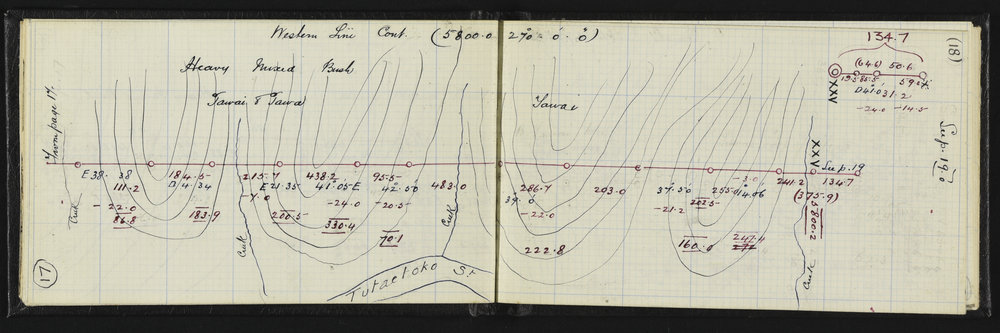 Western Line Cont. (5800.0 270° 0' 0")
Heavy Mixed Bush
Tawai & Tawa
Tawai
From page 17.
134.7
(64.6) 50.6
XXV
D41.0 31.2
-24.0 -14.5
(18)
Sup. 19
XXV
Sup. 19
E38. 38 184.5 215.7 438.2 95.5 483.0 286.7 203.0 37.50 255.0 241.2 134.7
111.2 D14.34 E21.35 41.05E 42.50 39.0 14.06 (375.9)
-22.0 -7.0 -24.0 -20.5 -22.0 -21.2 202.5 -3.0
86.8 183.9 200.5 330.4 70.1 222.8 160.0 247.4 5800.2
272
Creek
Creek
Creek
Creek
Tutaetoko St
(17)